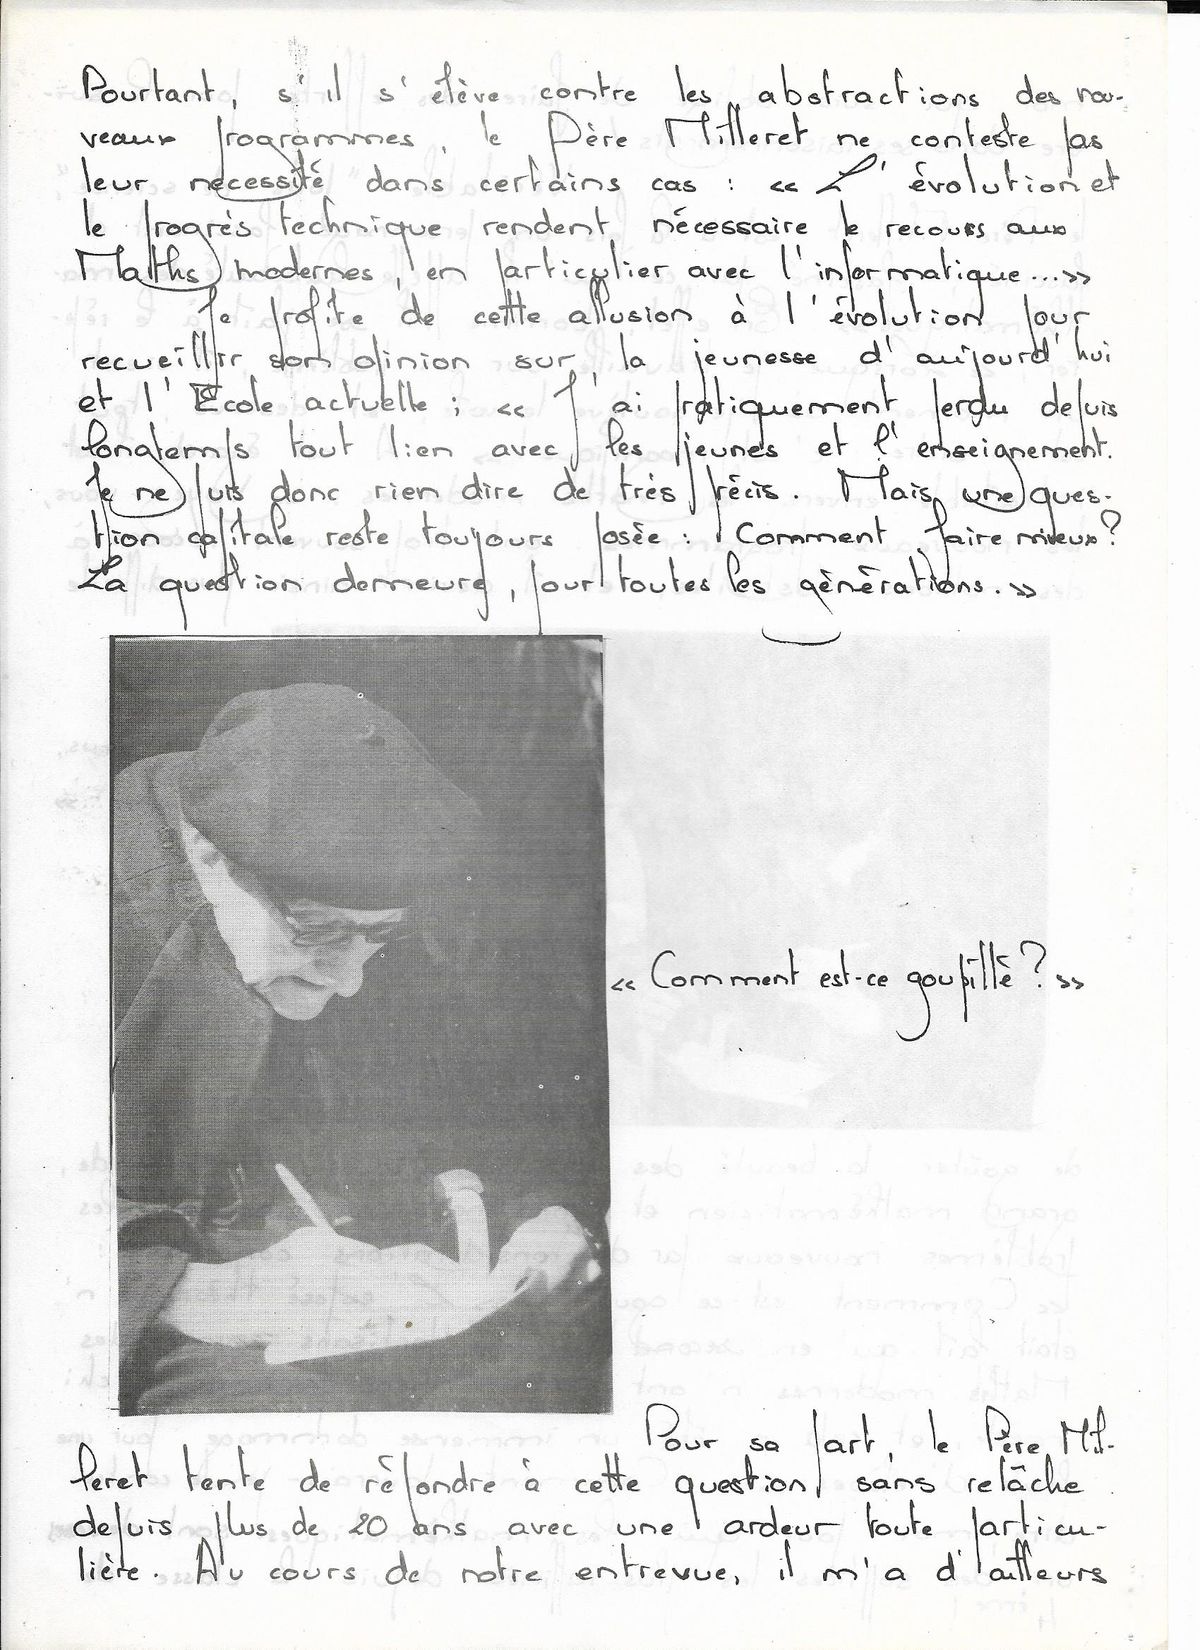 Pourtant, s'il s'élève contre les abstractions des nou-
veaux programmes, le Père Milleret ne conteste pas
leur nécessité dans certains cas : « L'évolution et
le progrès technique rendent nécessaire le recours aux
Maths modernes, en particulier avec l'informatique...»
Je profite de cette allusion à l'évolution pour
recueillir son opinion sur la jeunesse d'aujourd'hui
et l'Ecole actuelle ; « J'ai pratiquement perdu depuis
longtemps tout lien avec les jeunes et l'enseignement.
Je ne puis donc rien dire de très précis. Mais une ques-
tion capitale reste toujours posée : Comment faire mieux ?
La question demeure, pour toutes les générations. »
« Comment est-ce goupillé ? »
Pour sa part, le Père Mil-
leret tente de répondre à cette question sans relâche
depuis plus de 20 ans avec une ardeur toute particu-
lière. Au cours de notre entrevue, il m'a d'ailleurs